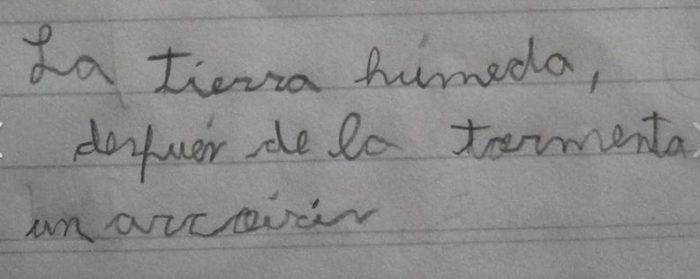 La tierra húmeda,
después de la tormenta
un arcoiris